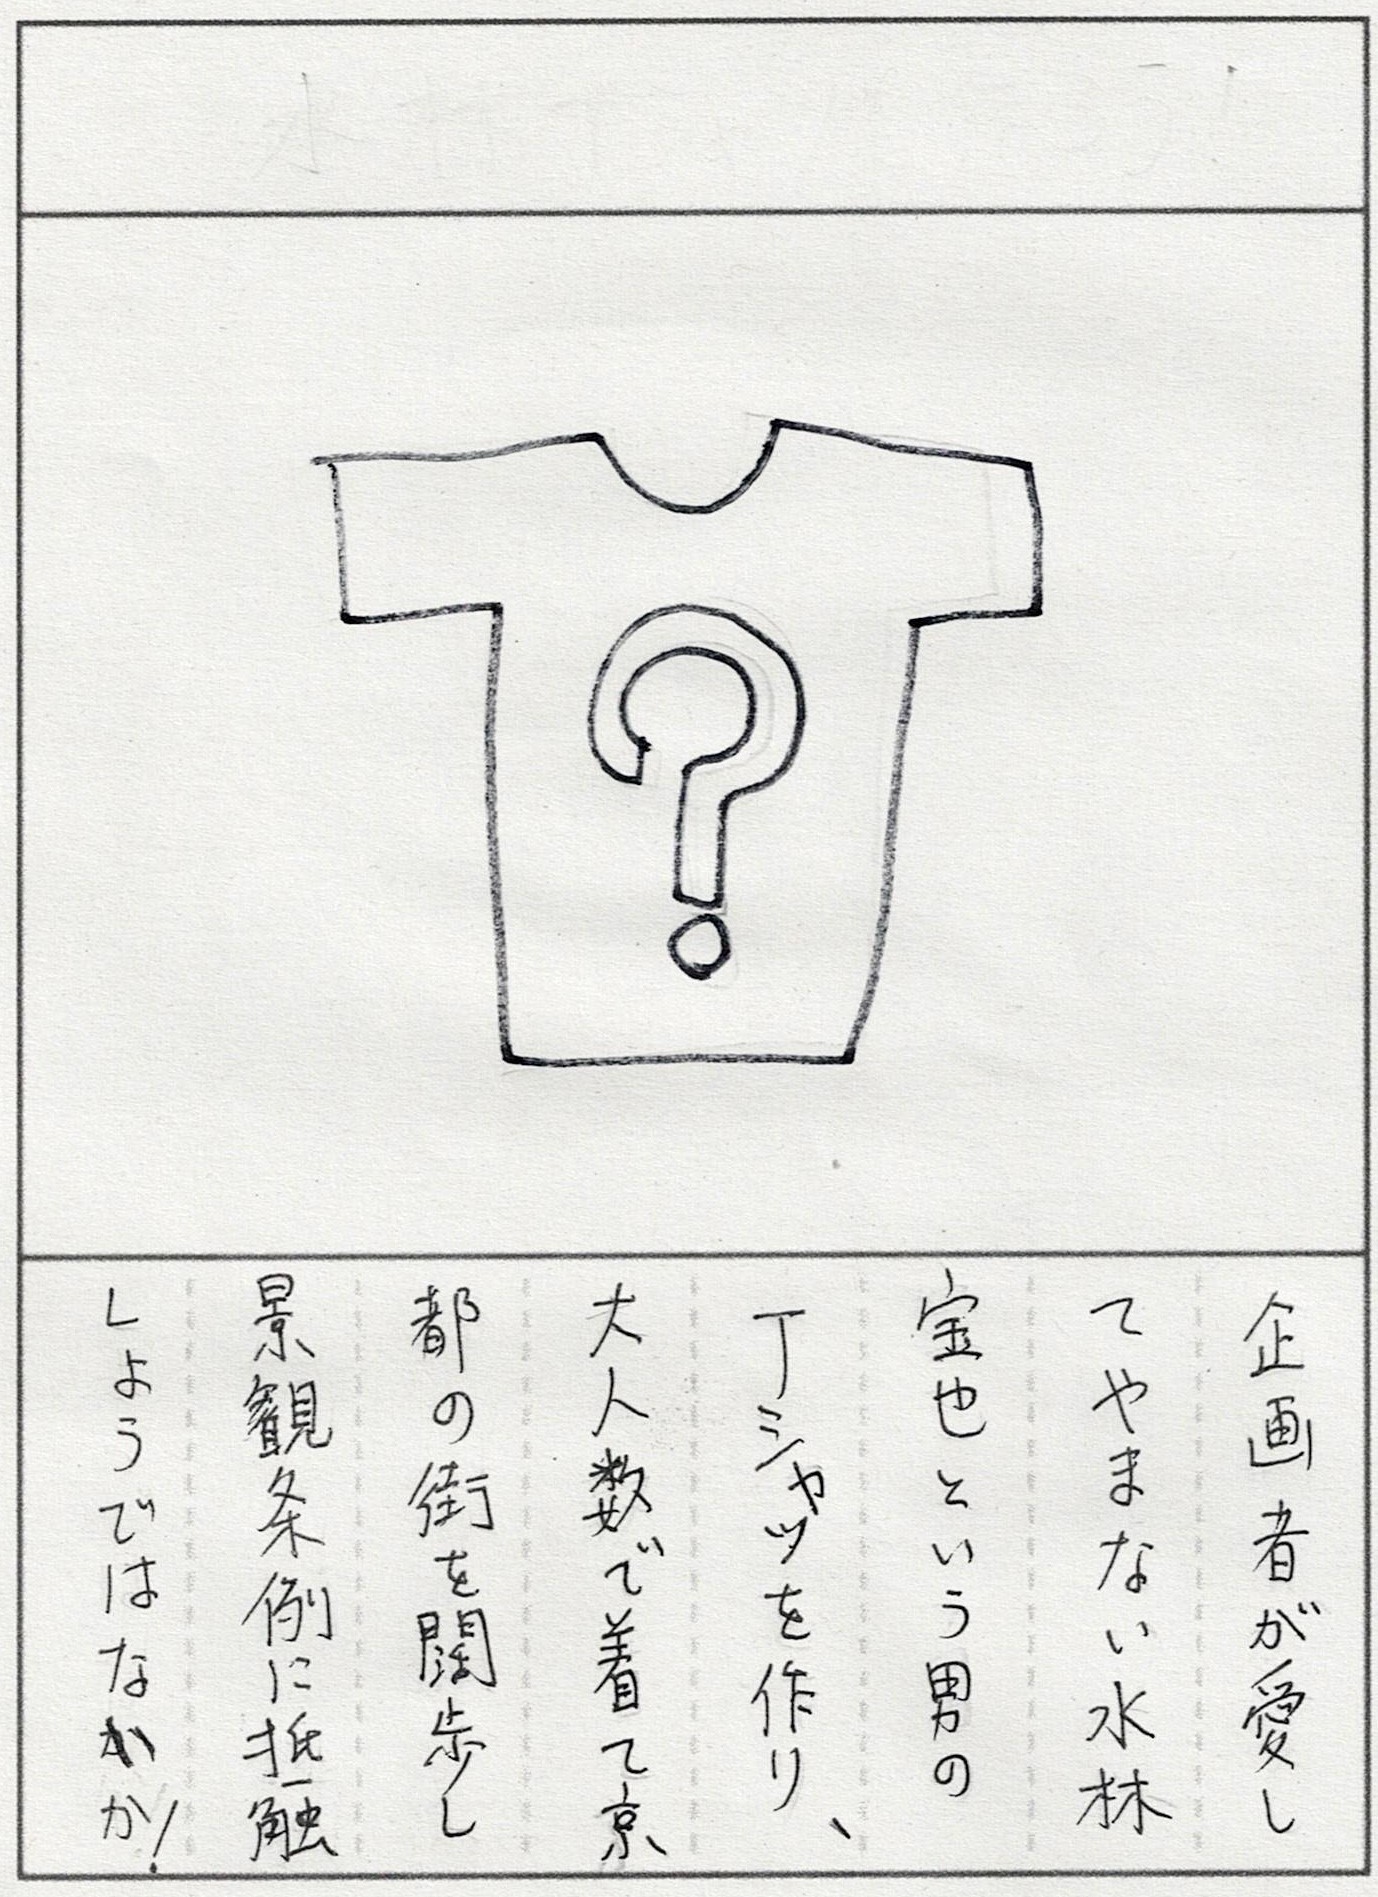 企画者が愛し
てやまない水林
宝也という男の
Tシャツを作り、
大人数で着て京
都の街を闊歩し
景観条例に抵触
しようではないか!